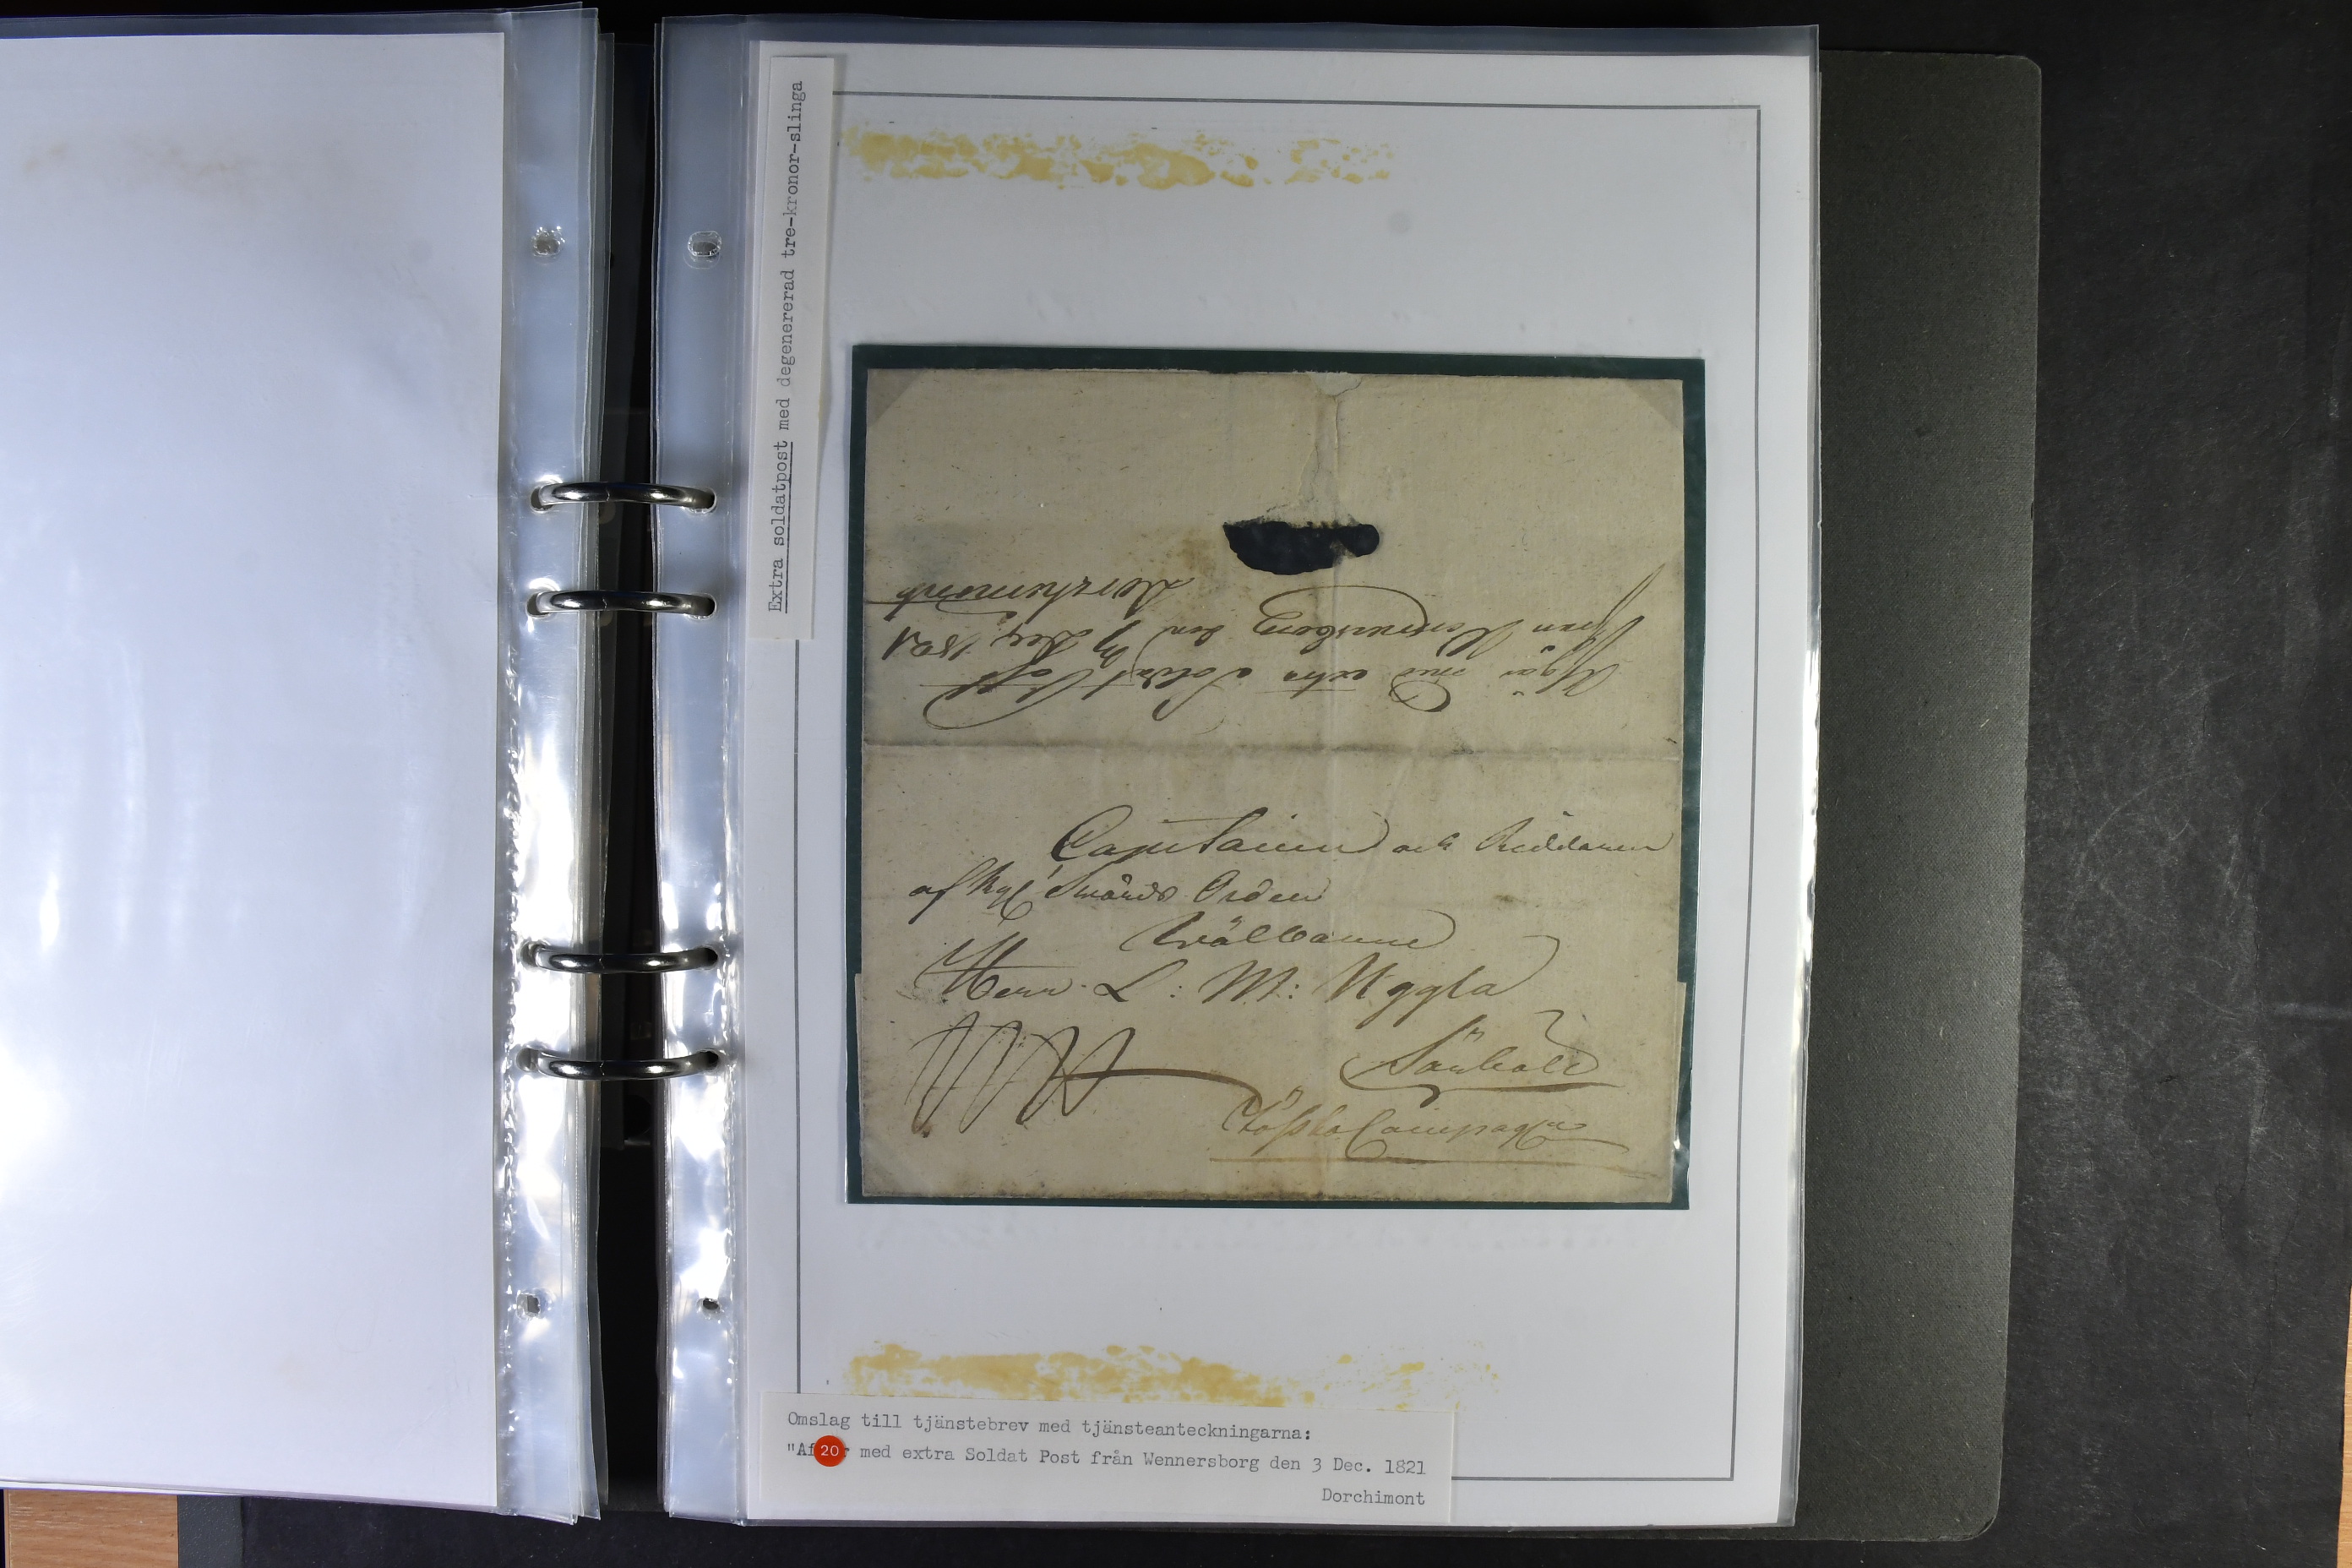 Extra soldatpost med degenererad tre-kronor-slinga
Afgår med extra Soldat Post
från Wennersborg den 3 Dec 1821
Dorchimont
Capitainen och Riddaren
af Kgl Swärds Orden
Wälborne
Herr L: M: Uggla
Compagn
Omslag till tjänstebrev med tjänsteanteckningarna:
"Af r med extra Soldat Post från Wennersborg den 3 Dec. 1821
20
Dorchimont